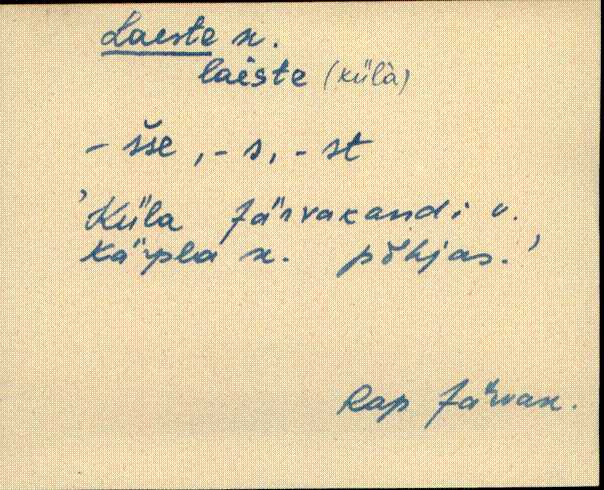 Laeste k.
laeste (külà)
- sse, - s, - st
'Küla Järvakandi v.
Kärpla k. põhjas.'
Rap Järvak.